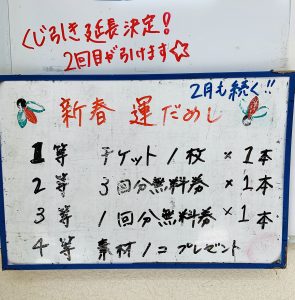 くじ引き延長決定!
2回目が引けます☆
2月も続く!!
新春 運だめし
1等 チケット1枚×1本
2等 3回分無料券×1本
3等 1回分無料券×1本
4等 素材1コプレゼント